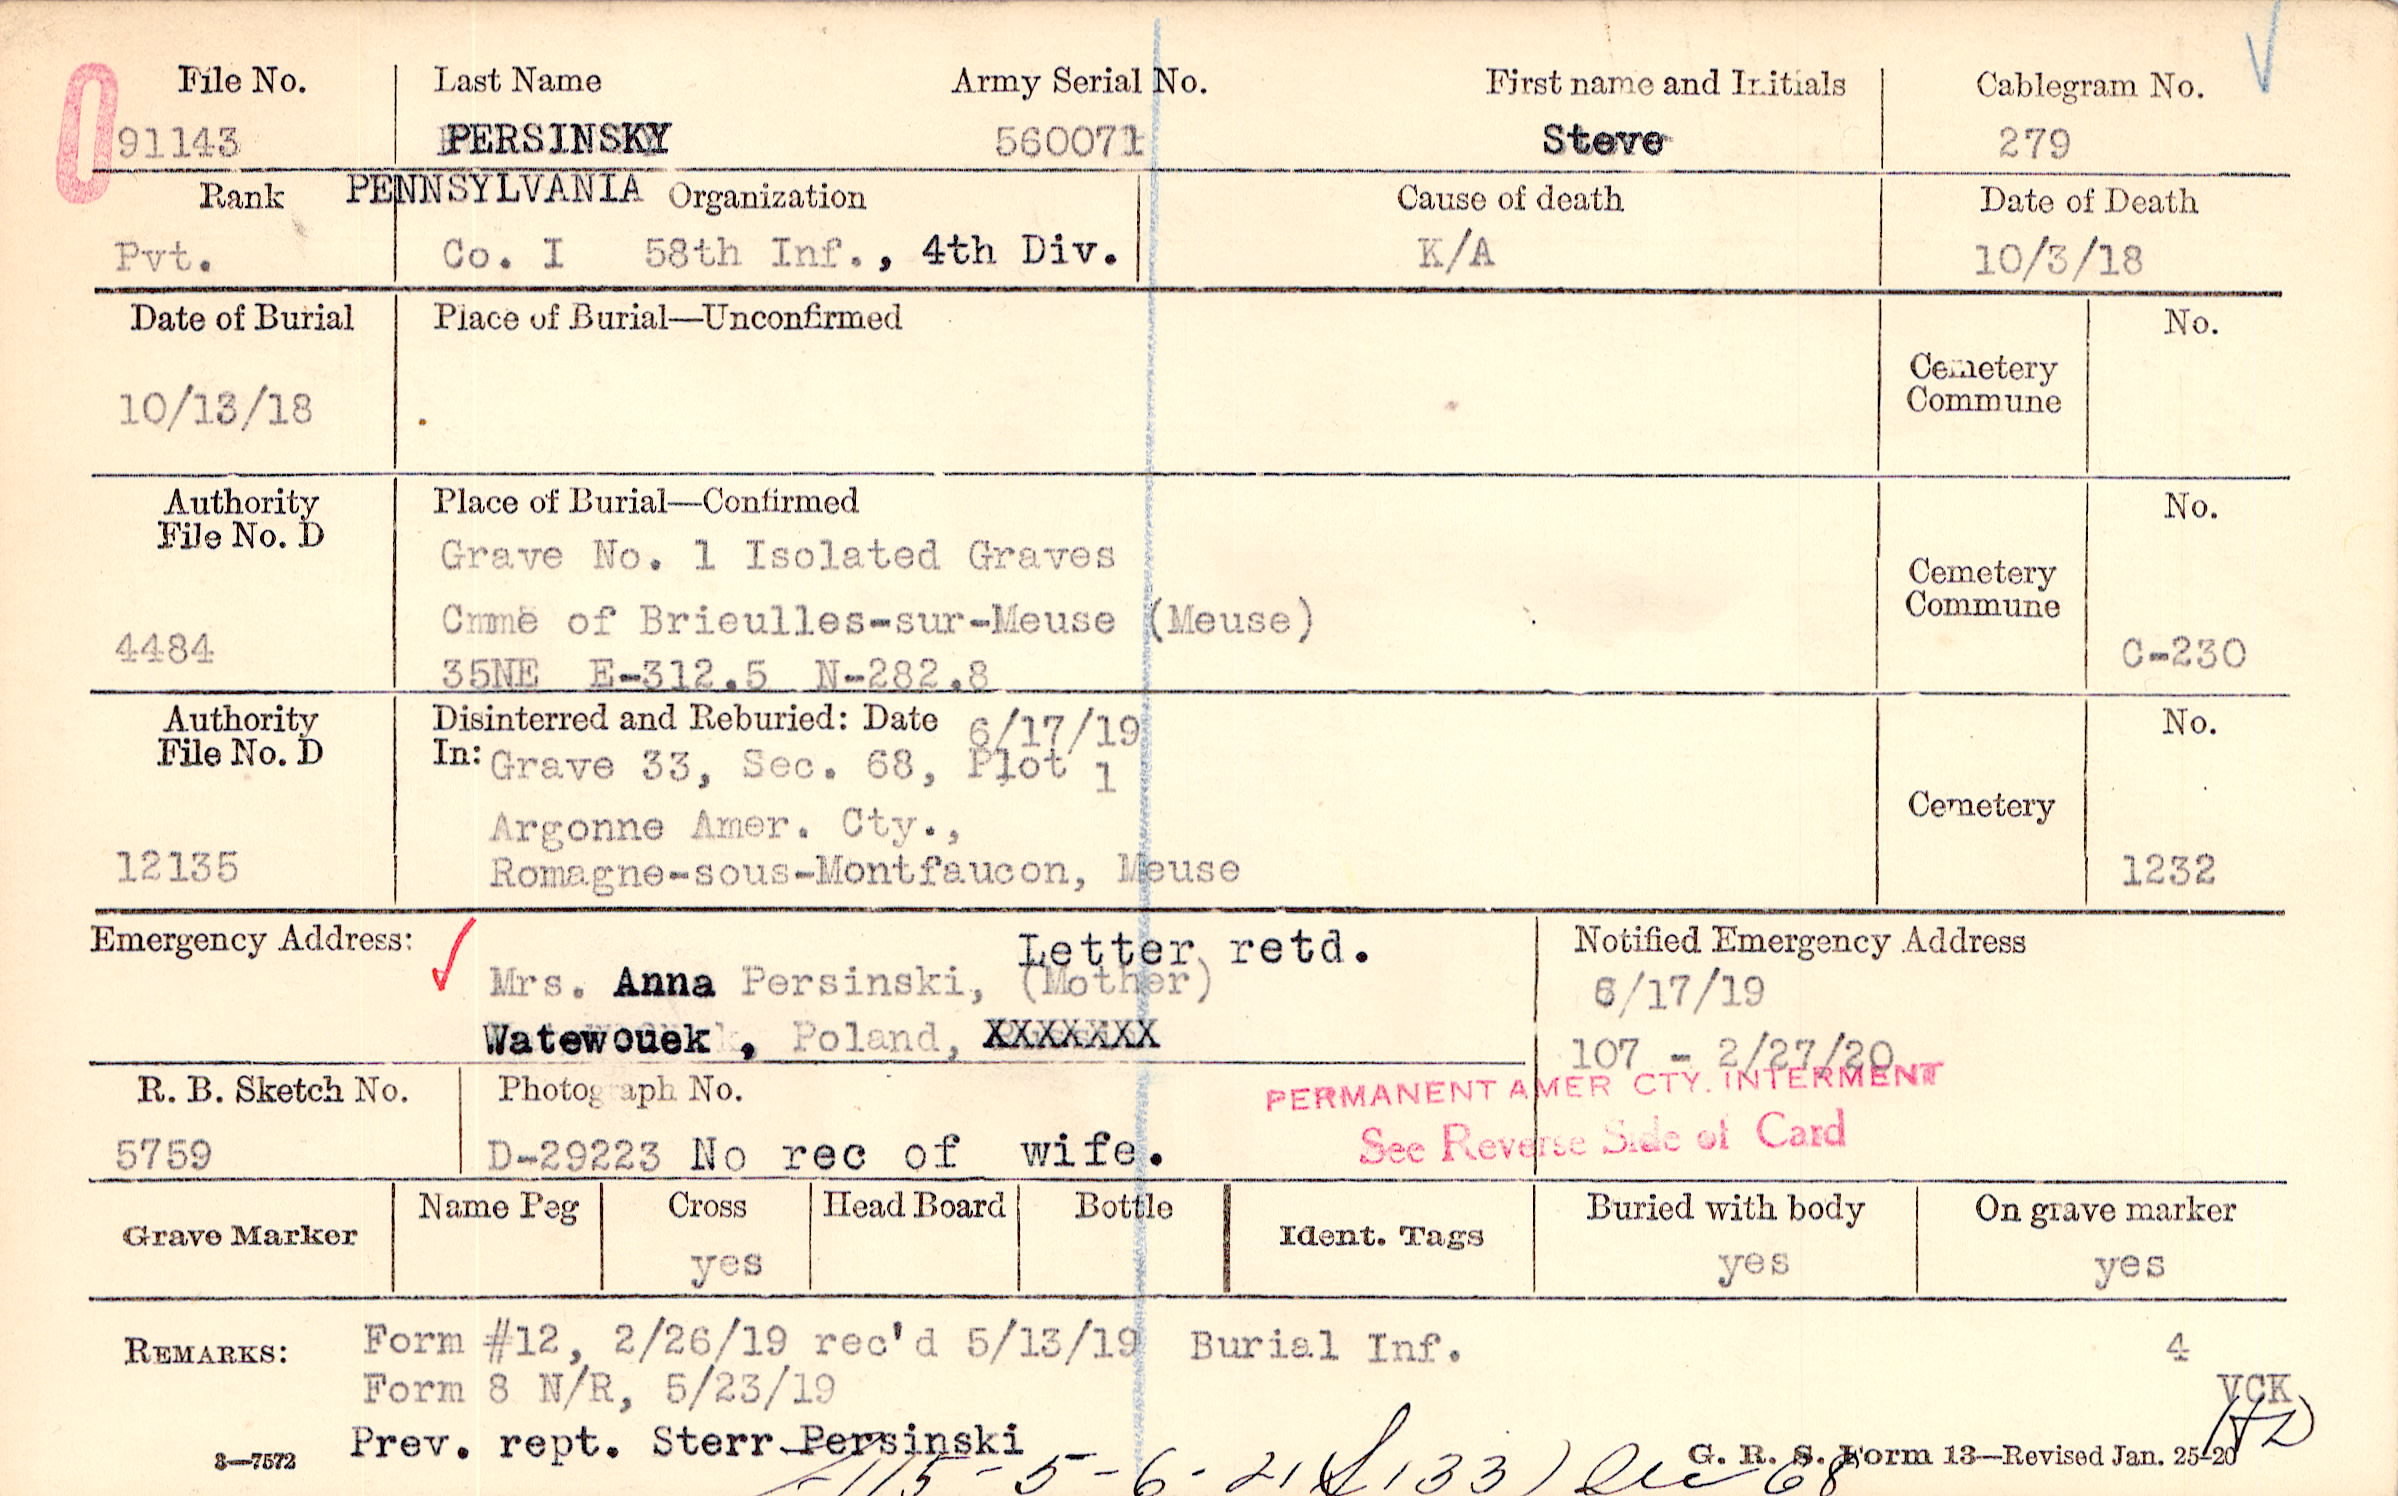 File No. Last Name Army Serial No. First name and Initials Cablegram No.
91143 PERSINSKY 560071 Steve 279
Rank PENNSYLVANIA Organization Cause of death Date of Death
Pvt. Co. I 58th Inf., 4th Div. K/A 10/3/18
Date of Burial Place of Burial—Unconfirmed No.
Cemetery
Commune
10/13/18
Authority Place of Burial—Confirmed No.
File No. D
Grave No. 1 Isolated Graves
Cemetery
Commune
Cmme of Brieulles-sur-Meuse (Meuse)
4484 C-230
35NE E-312.5 N-282.8
Authority Disinterred and Reburied: Date 6/17/19 No.
File No. D In: Grave 33, Sec. 68, Plot 1
Cemetery
Argonne Amer. Cty.,
12135 Romagne-sous-Montfaucon, Meuse 1232
Emergency Address: Letter retd. Notified Emergency Address
Mrs. Anna Persinski, (Mother) 6/17/19
Watewouek, Poland, XXXXXXX 107 - 2/27/20
R. B. Sketch No. Photograph No. PERMANENT AMER CTY. INTERMENT
See Reverse Side of Card
5759 D-29223 No rec of wife.
Grave Marker Name Peg Cross Head Board Bottle Ident. Tags Buried with body On grave marker
yes yes yes
REMARKS: Form #12, 2/26/19 rec'd 5/13/19 Burial Inf. 4
Form 8 N/R, 5/23/19 VCK
Prev. rept. Sterr Persinski
3—7572 G. R. S. Form 13—Revised Jan. 25-20
5-5-6-21 133) 68